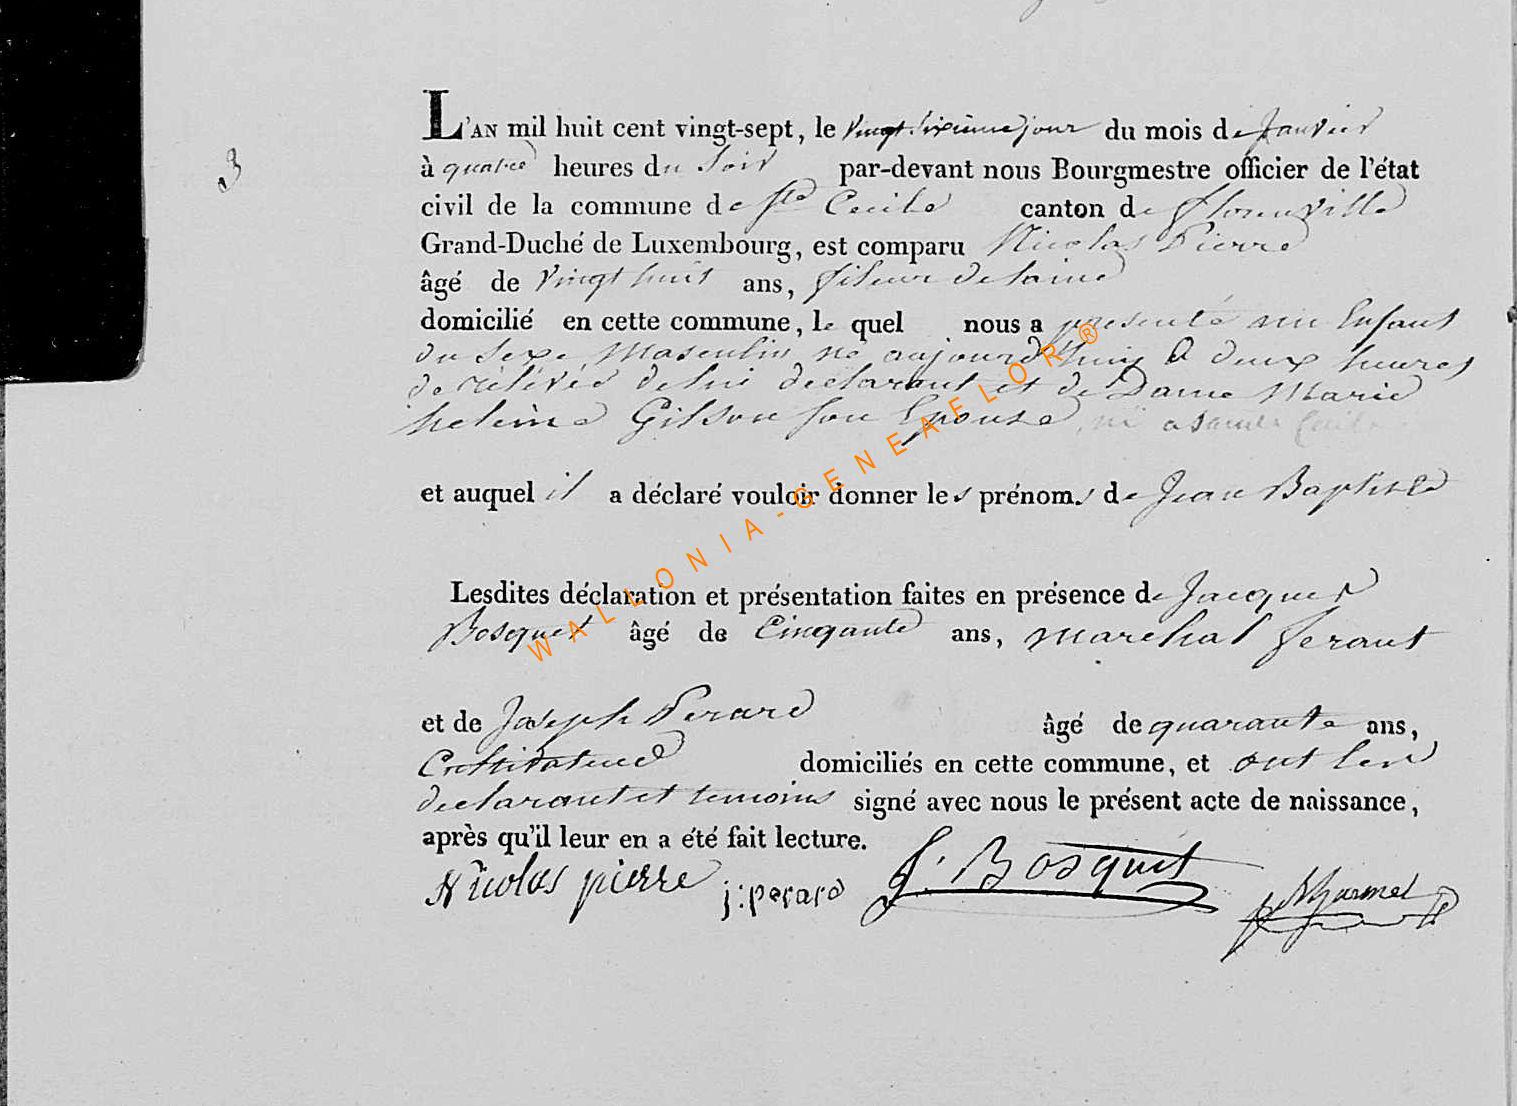 L'AN mil huit cent vingt-sept, le vingt sixieme jour du mois de Janvier
3
à quatre heures du Soir par-devant nous Bourgmestre officier de l'état
civil de la commune de Ste Cecile canton de florenville
Grand-Duché de Luxembourg, est comparu Nicolas Pierre
âgé de Vingt huit ans, fileur de laine
domicilié en cette commune, le quel nous a presenté un Enfant
du Sexe Masculin né aujourd'huy a deux heures
de relévée de lui declarant et de Dame Marie
heleine Gilson son Epouse, né a Sainte Cecile
et auquel il a déclaré vouloir donner les prénoms de Jean Baptiste
Lesdites déclaration et présentation faites en présence de Jacques
Bosquet âgé de Cinqante ans, marechal ferant
et de Joseph Perard âgé de quarante ans,
domiciliés en cette commune, et ont les
declarant et temoins signé avec nous le présent acte de naissance,
après qu'il leur en a été fait lecture.
Nicolas pierre j: perard J. Bosquet
WALLONIA-GENEAFLOR®